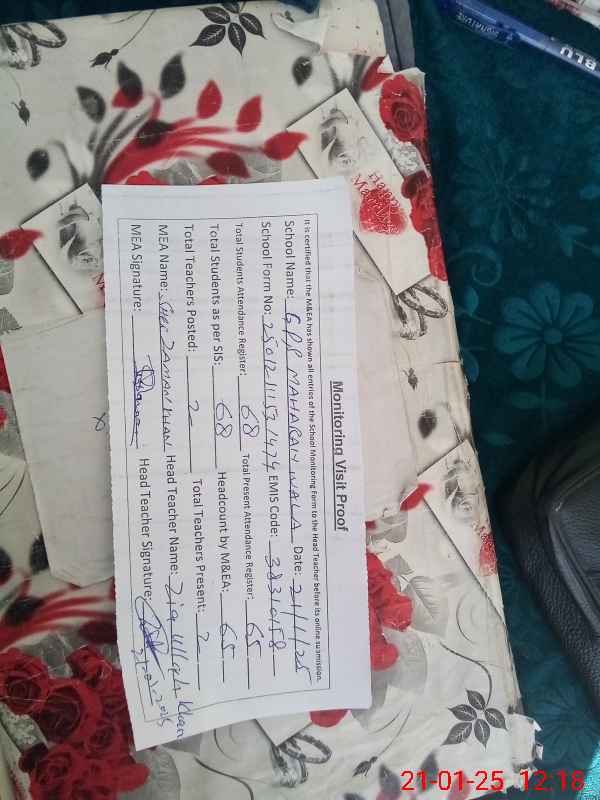 Monitoring Visit Proof
It is certified that the M&EA has shown all entries of the School Monitoring Form to the Head Teacher before its online submission.
School Name: GPS MAHARAN WALA Date: 21/1/25
School Form No: EMIS Code: 38310158
Total Students Attendance Register: 68 Total Present Attendance Register: 65
Total Students as per SIS: 68 Headcount by M&EA: 65
Total Teachers Posted: 2 Total Teachers Present: 2
MEA Name: ZAMAN KHAN Head Teacher Name: Zia Ullah Khan
MEA Signature: Head Teacher Signature:
Happy
Signature
BLU
21-01-25 12:18